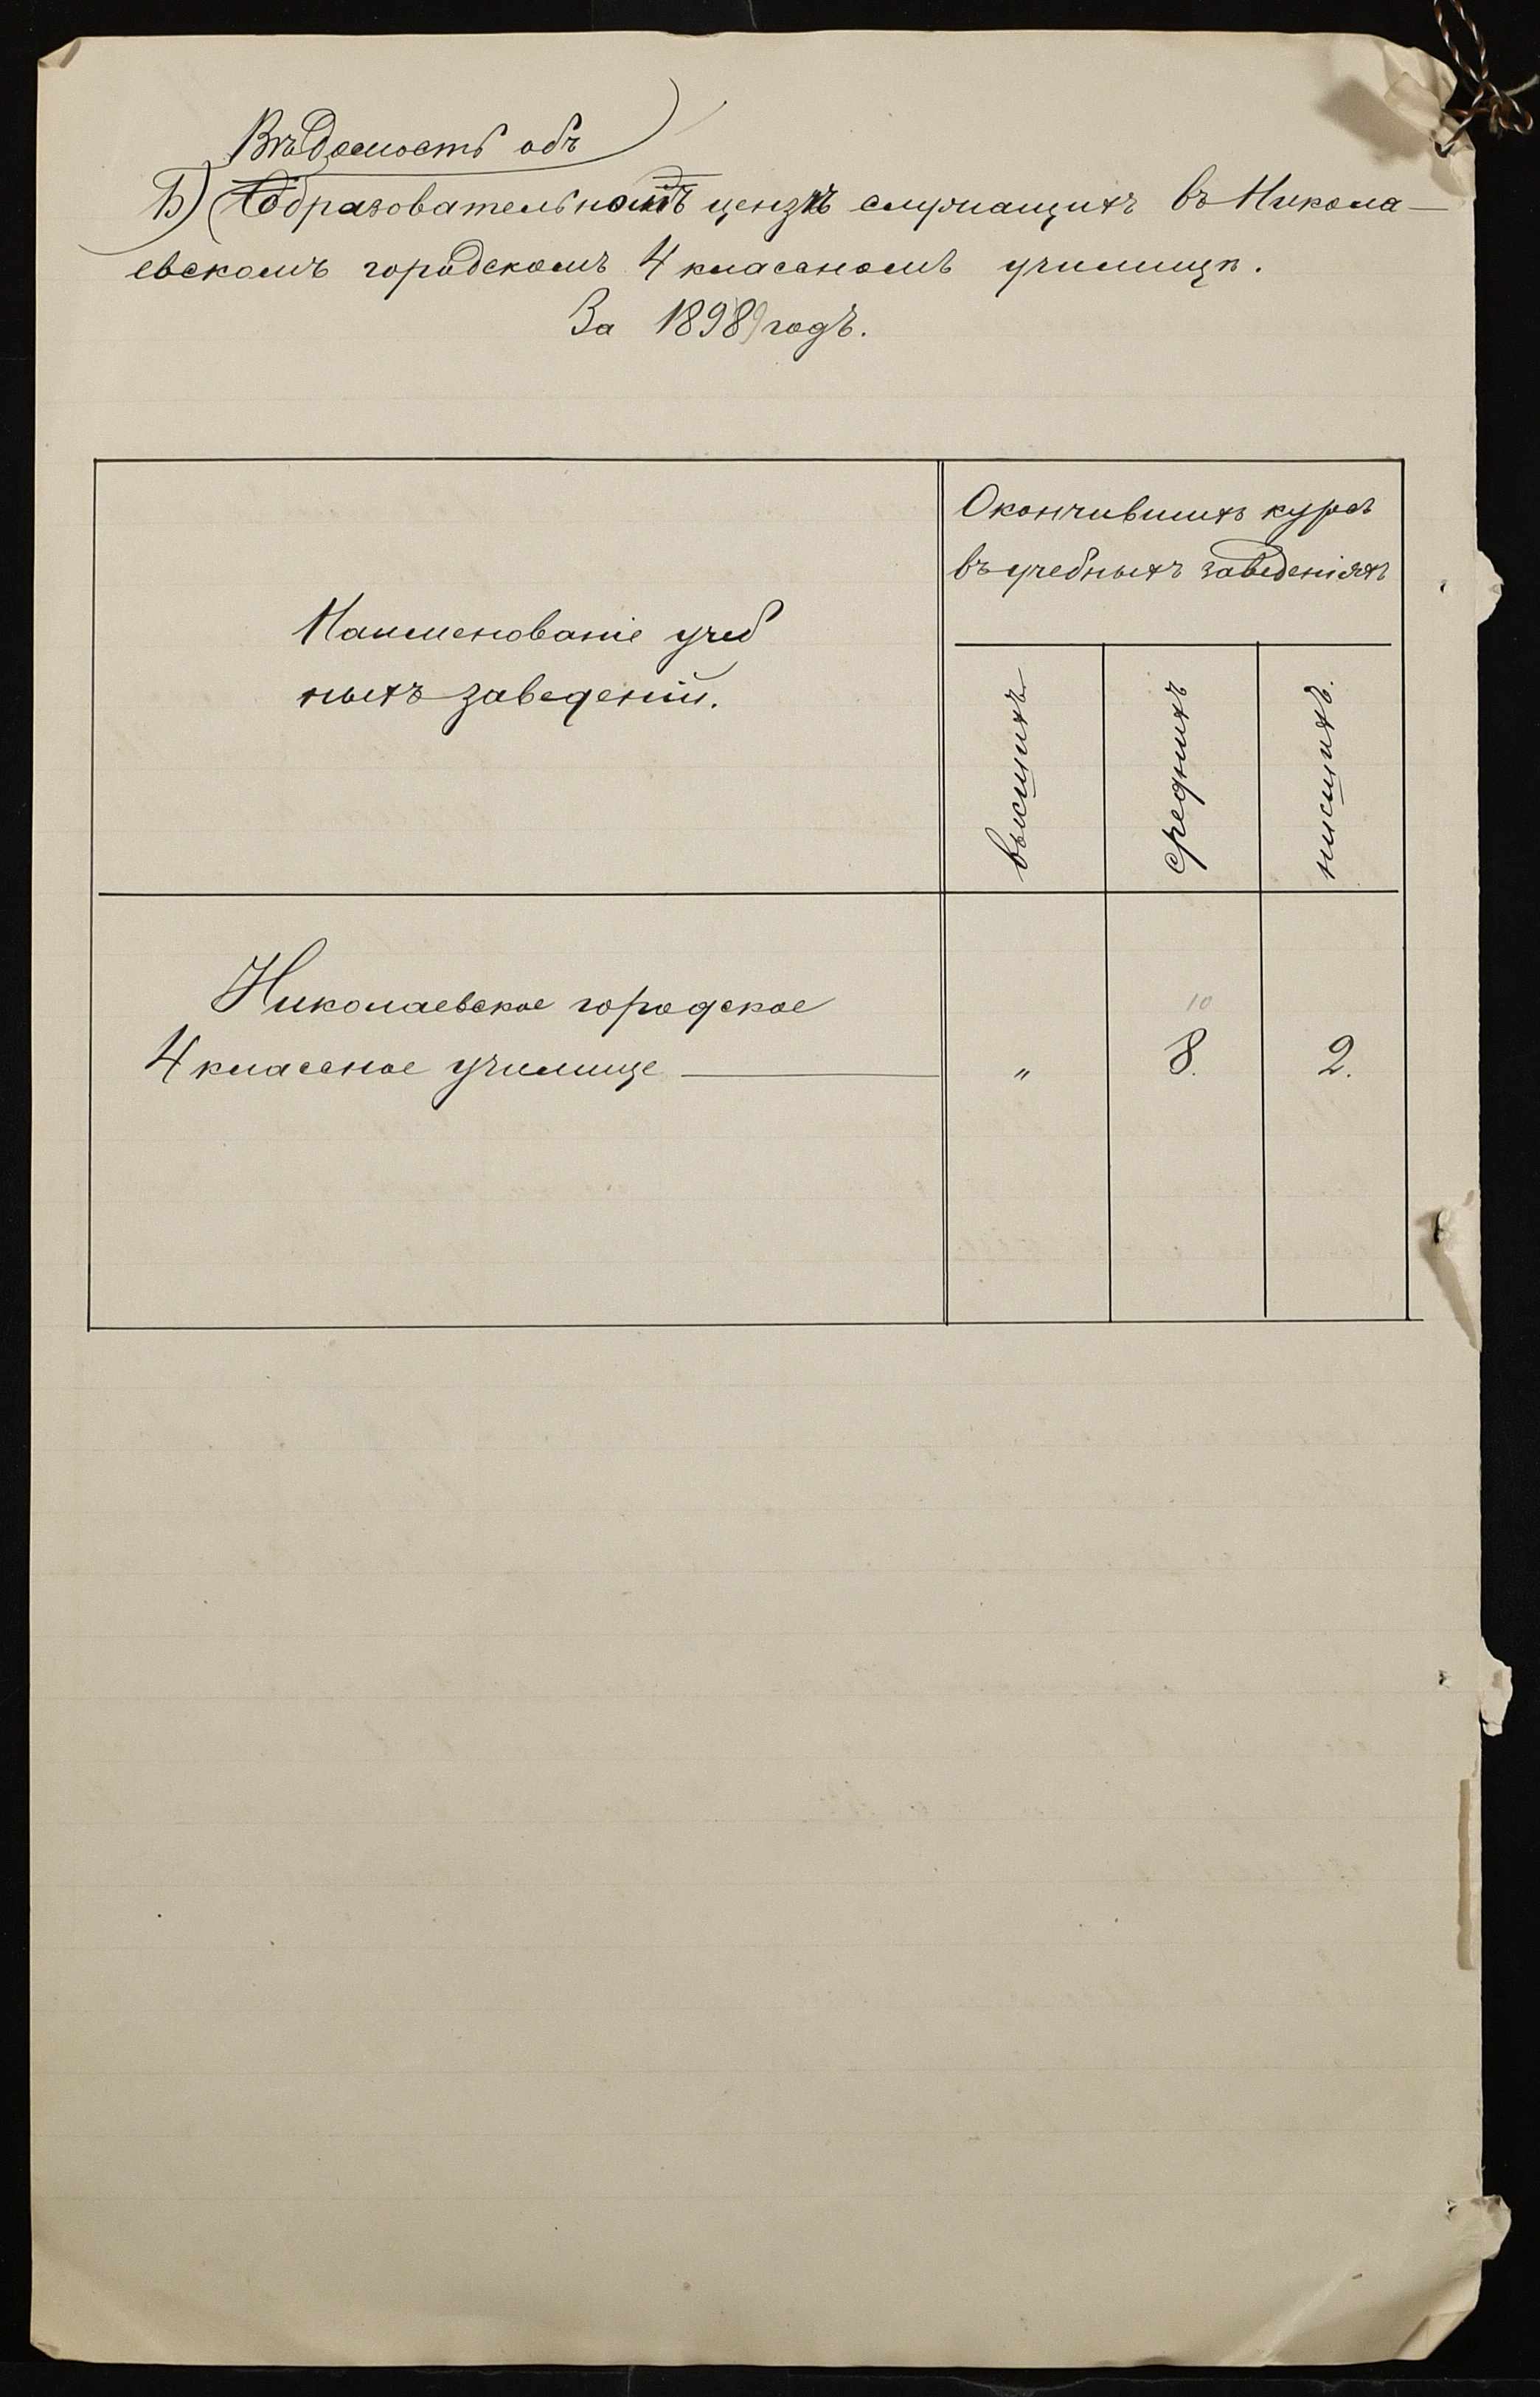 Вѣдомость объ
Б) Образовательномъ цензѣ служащихъ въ Никола-
евскомъ городскомъ 4 классномъ училищѣ.
За 1898 годъ.
Окончившихъ курсъ
въ учебныхъ заведеніяхъ
Наименованіе учеб
ныхъ заведеній.
высшихъ
среднихъ
нисшихъ.
Николаевское городское
10
4 классное училище — " 8. 2.